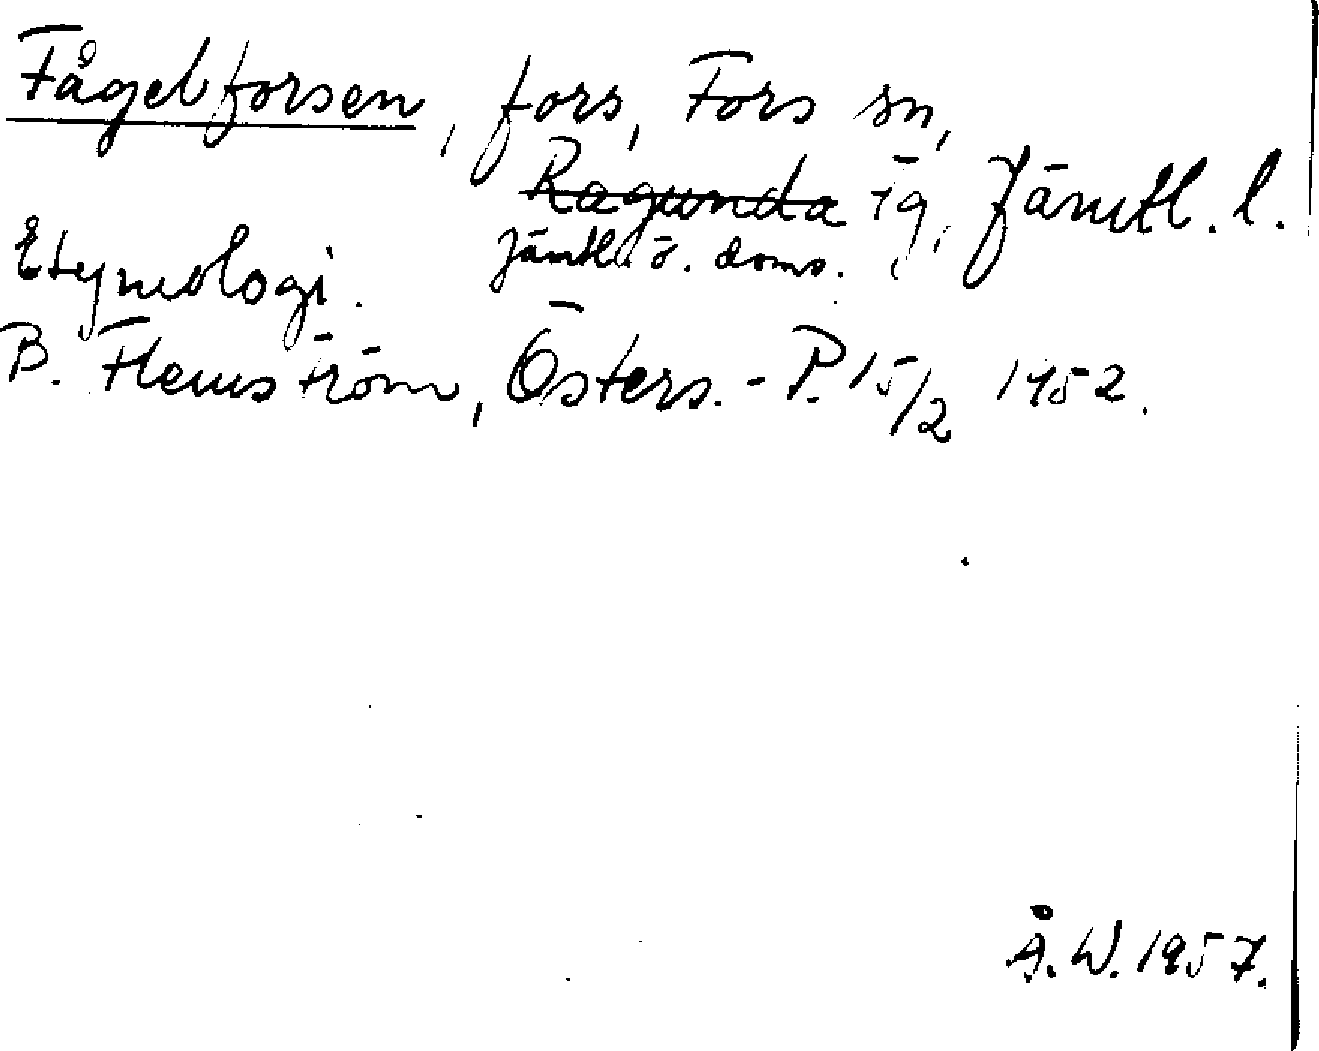 Fågelforsen, fors, Fors sn,
Ragunda tg, Jämtl. l.
Jämtl. ö. doms.
Etymologi.
B. Flemström, Österes.-P. 15/2 1952.
Å.W. 1957.